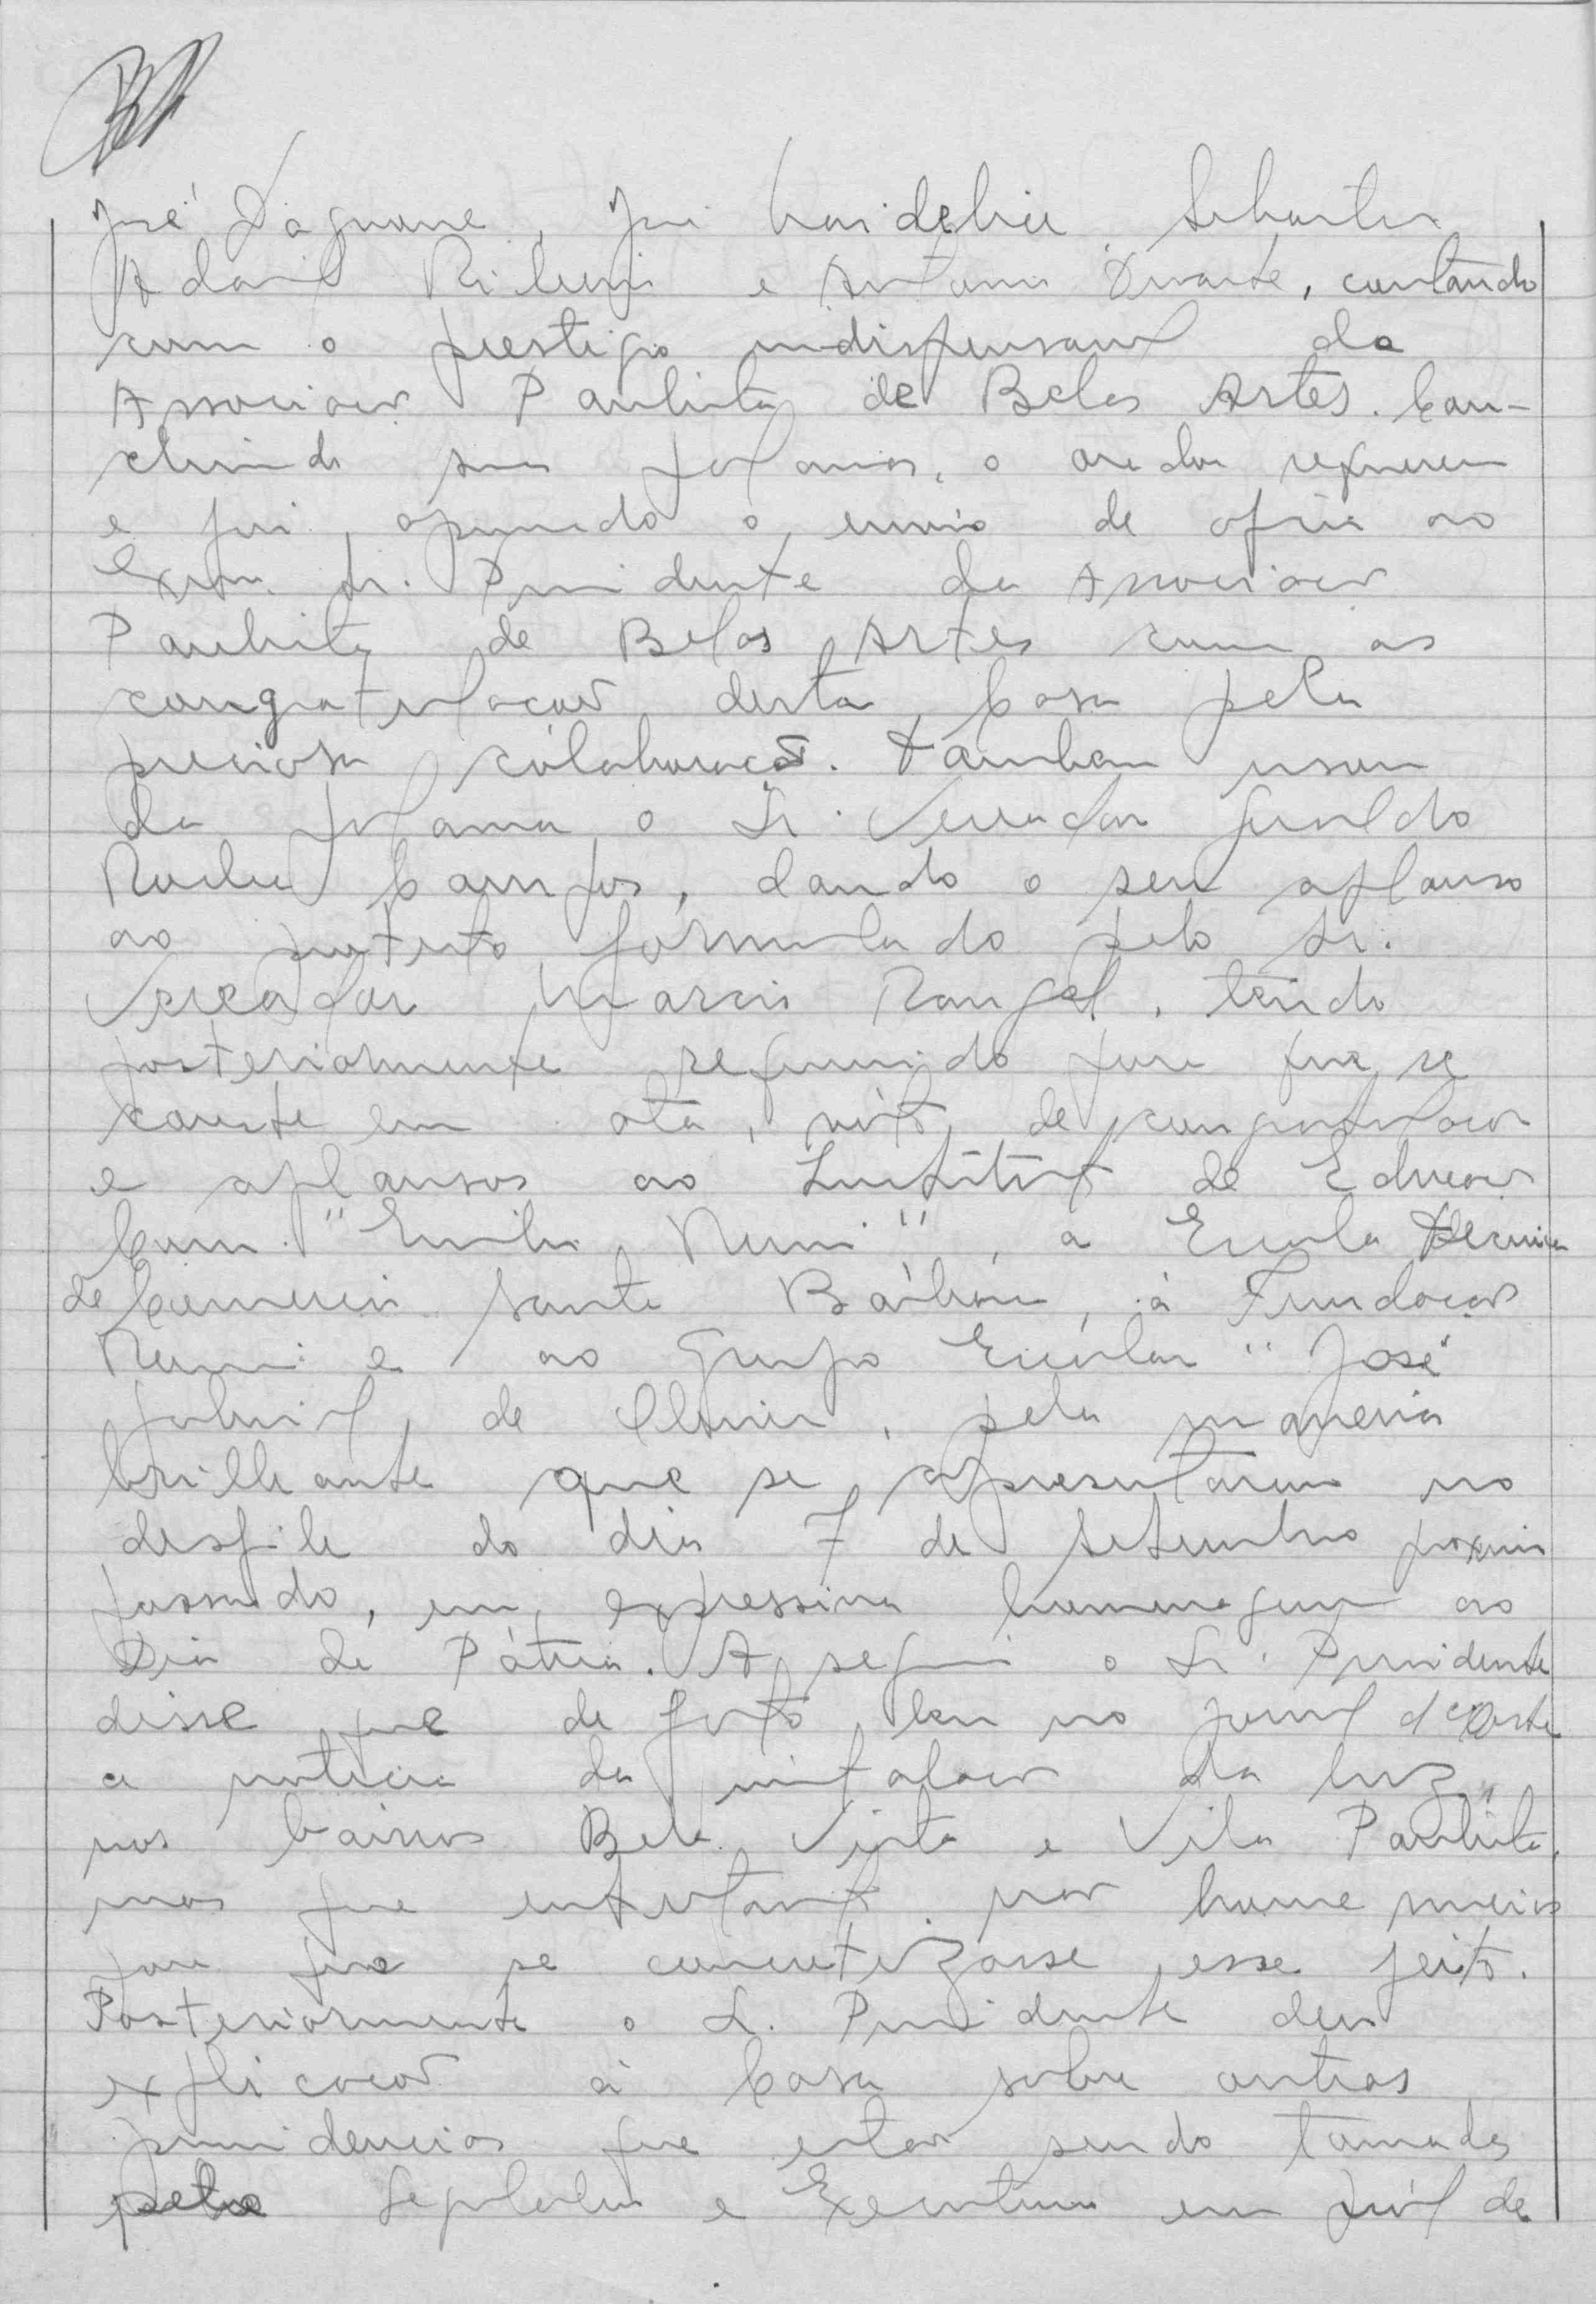 José
Adail e Antonio Duarte, contando
com o prestigio indispensavel da
Associacão Paulista de Belas Artes. Con-
cluindo sua palavra, o orador requereu
e foi aprovado o envio de oficio ao
Exmo. Sr. Presidente da Associacão
Paulista de Belas Artes com as
congratulacões desta Casa pela
preciosa colaboracão. Tambem usou
da palavra o Sr. Vereador Geraldo
Rocha Campos, dando o seu aplauso
ao protesto formulado pelo Sr.
Vereador Marcio Rangel, tendo
posteriormente requerido para que se
conste em ata, voto de congratulacão
e aplausos ao Instituto de Educacão
Com. "Emilio Romi", à Escola Tecnica
de Comercio Santa Bárbara, à Fundacão
Romi e ao Grupo Escolar "José
Gabriel de Oliveira, pela maneira
brilhante que se apresentaram no
desfile do dia 7 de Setembro proximo
passado, em expressiva homenagem ao
Dia da Pátria. A seguir o Sr. Presidente
disse que de fato leu no jornal d'Oeste
a noticia da instalacão da luz
nos bairros Bela Vista e Vila Paulista,
mas que entretanto não houve meios
para que se concretizasse esse feito.
Posteriormente o Sr. Presidente deu
explicacão à Casa sobre outras
providencias que estão sendo tomadas
pelo Legislativo e Executivo em pról de